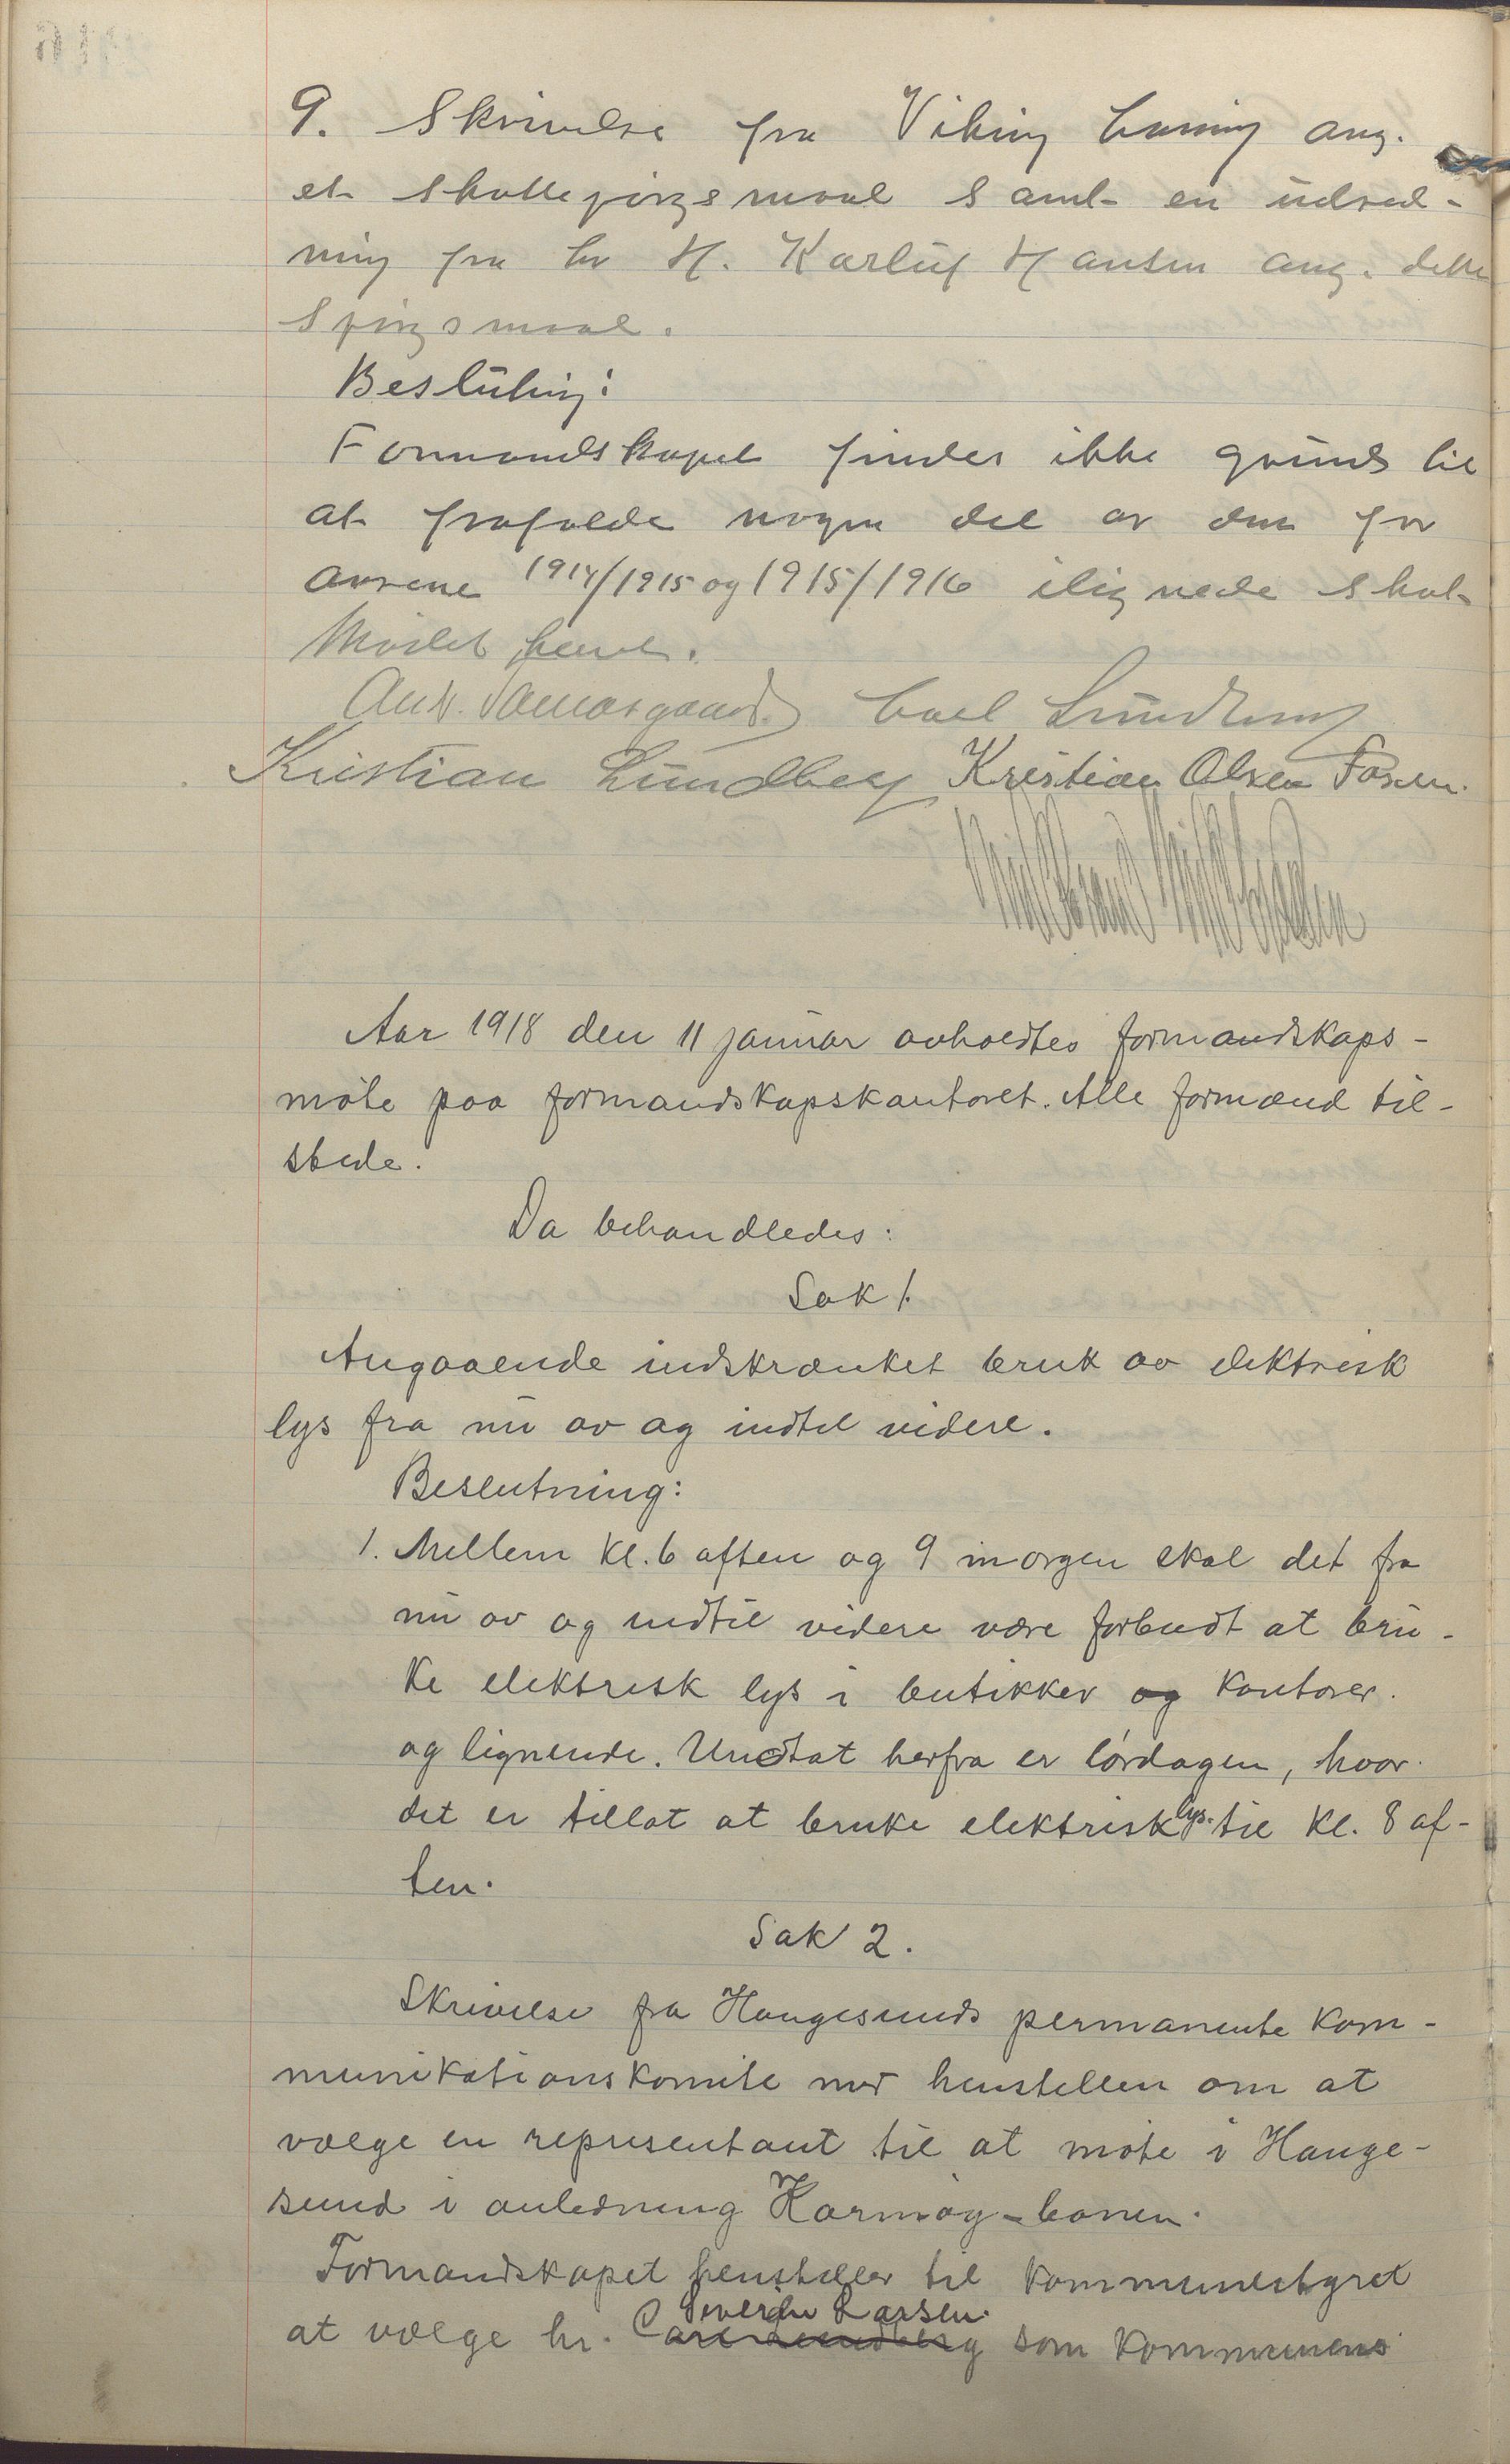 9. Skrivelse fra Viking Caning ang.
et skattespörgsmaal samt en udred-
ning fra hr H. Karluf Hansen ang. dette
Spörgsmaal.
Beslutning:
Formandskapet finder ikke grund til
at frafalde nogen del av den for
aarene 1914/1915 og 1915/1916 ilignede skat
Mödet hevet.
Carl Lundberg
Kristian Lundberg Kristian Olsen Fosen.
Aar 1918 den 11 januar avholdtes formandskaps-
möte paa formandskapskontoret. Alle formænd til-
stede.
Da behandledes:
Sak 1.
Angaaende indskrænket bruk av elektrisk
lys fra nu av og indtil videre.
Beslutning:
1. Mellem kl. 6 aften og 9 morgen skal det fra
nu av og indtil videre være forbudt at bru-
ke elektrisk lys i butikker og kontorer.
og lignende. Undtat herfra er lördagen, hvor
det er tillat at bruke elektrisk lys til kl. 8 af-
ten.
Sak 2.
Skrivelse fra Haugesunds permanente kom-
munikationskomite med henstillen om at
vælge en representant til at möte i Hauge-
sund i anledning Karmöy-banen.
Formandskapet henstiller til kommunestyret
Severin Larsen
at vælge hr. Carl Lundberg som kommunens